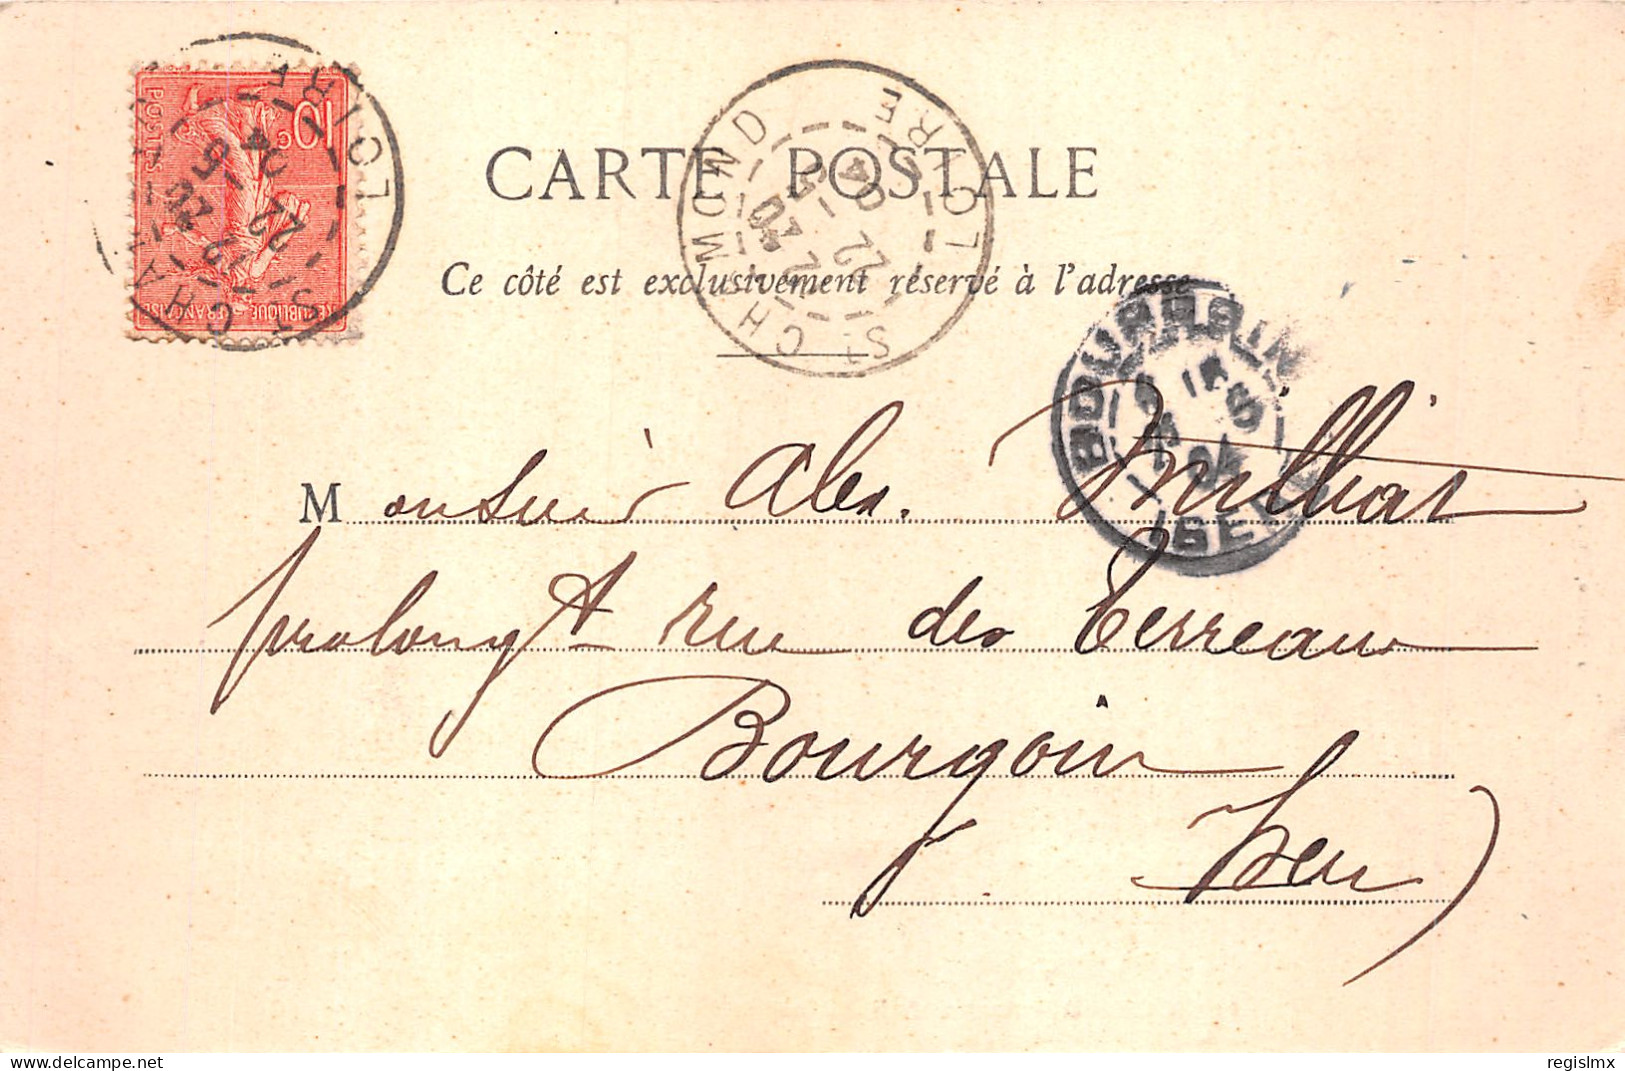 10c
POSTES
REPUBLIQUE FRANÇAISE
ST CHAMOND
LOIRE
22
04
ST CHAMOND
LOIRE
22
04
CARTE POSTALE
Ce côté est exclusivement réservé à l'adresse
BOURGOIN
04
ISERE
Monsieur Alex. Milliat
prolongt rue des Terreaux
Bourgoin
Isère)
delcampe.net
regislmx